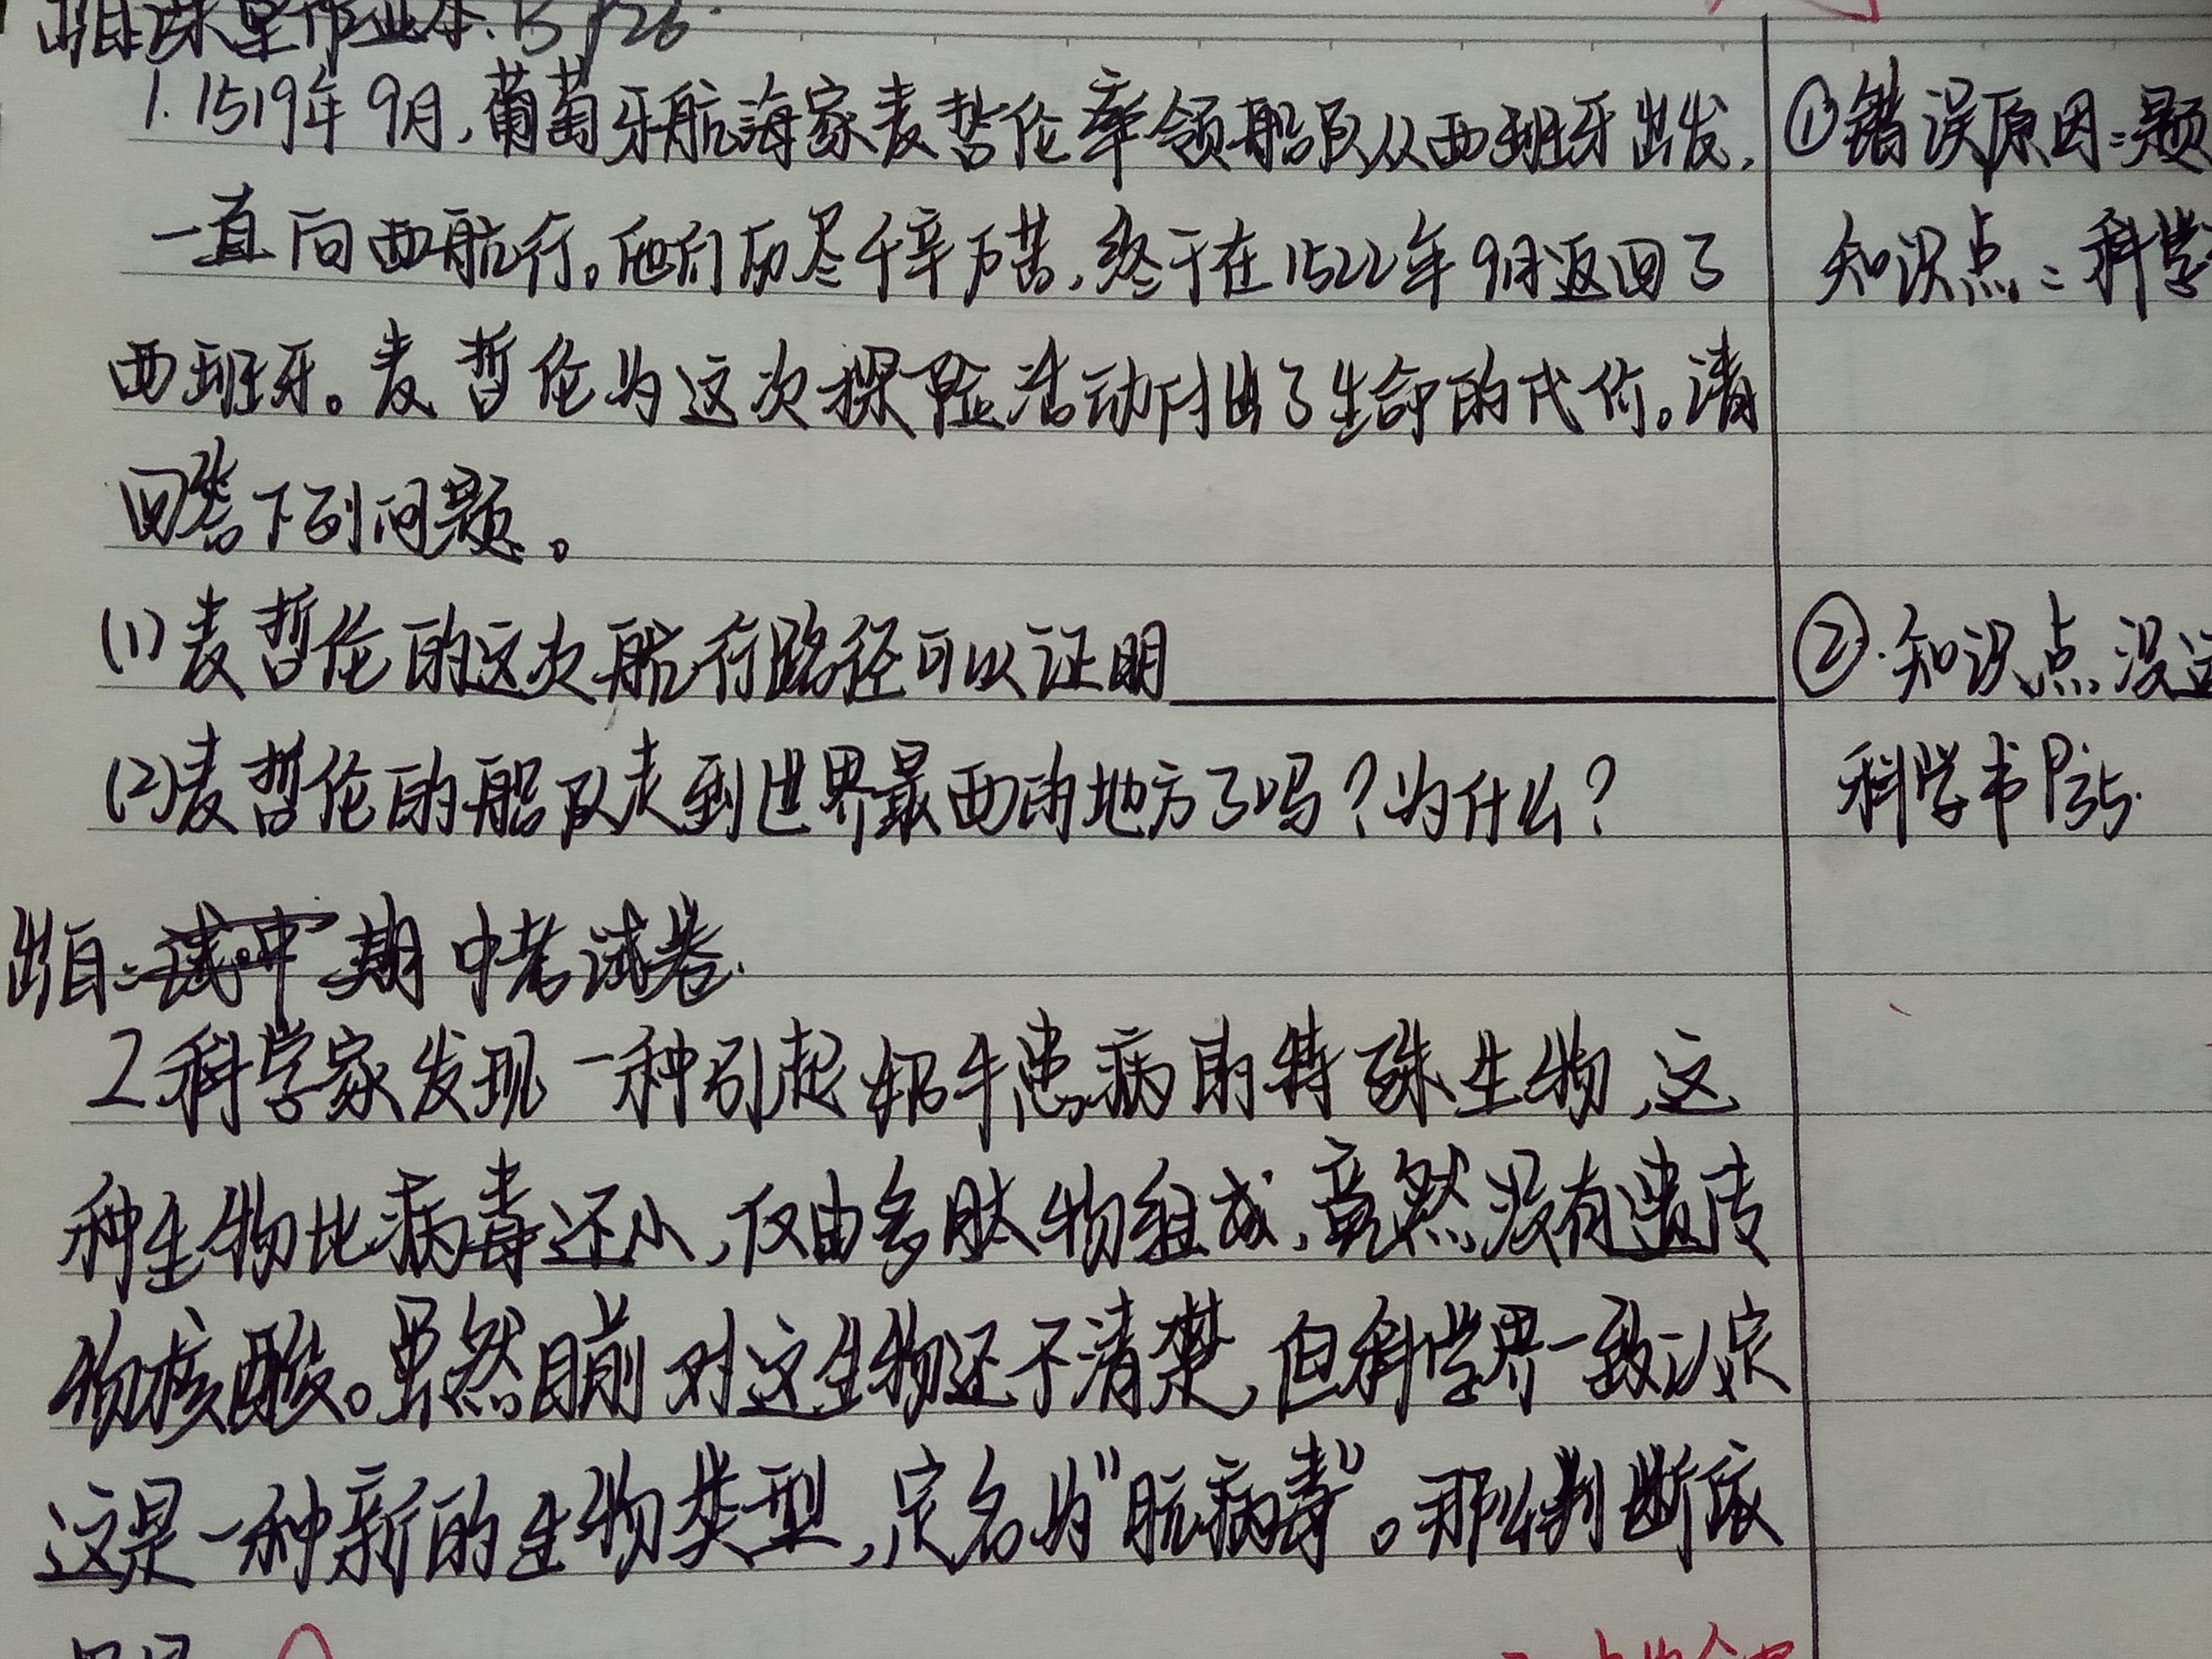 出自:课堂作业本.B P26.
1.1519年9月,葡萄牙航海家麦哲伦率领船队从西班牙出发,
一直向西航行。他们历尽千辛万苦,终于在1522年9月返回了
西班牙。麦哲伦为这次探险活动付出了生命的代价。请
回答下列问题。
(1)麦哲伦的这次航行路径可以证明
(2)麦哲伦的船队走到世界最西的地方了吗?为什么?
出自:期中考试卷.
2.科学家发现一种引起奶牛患病的特殊生物,这
种生物比病毒还小,仅由多肽物组成,竟然没有遗传
物核酸。虽然目前对这生物还不清楚,但科学界一致认定
这是一种新的生物类型,定名为"朊病毒"。那么判断依
①错误原因:题
知识点:科学
②.知识点没
科学书P35.